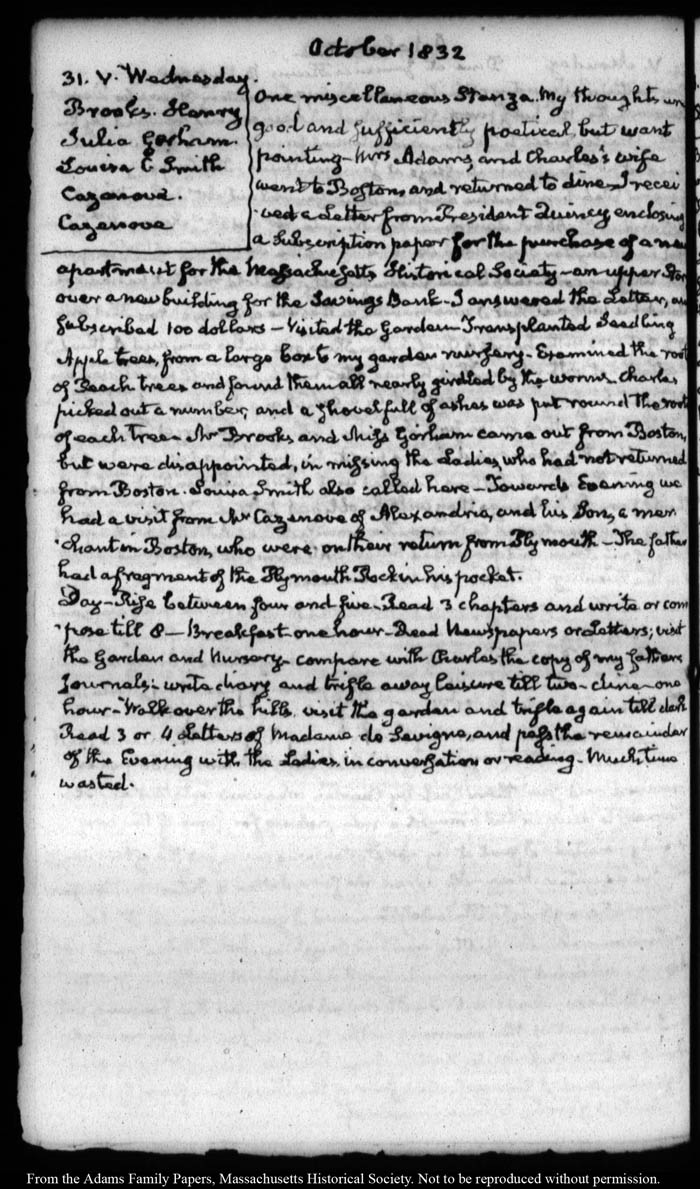 October 1832
31. V. Wednesday.
Brooks. Henry
Julia Gorham.
Louisa C Smith
Cazenove.
Cazenove
One miscellaneous Stanza. My thoughts
good and sufficiently poetical, but want
pointing - Mrs Adams, and Charles's wife
went to Boston, and returned to dine - I recei
-ved a Letter from President Quincy, enclosing
a Subscription paper for the purchase of a new
apartment for the Massachusetts Historical Society - an upper
over a new building for the Savings Bank - I answered the Letter,
subscribed 100 dollars - Visited the Garden - Transplanted Seedling
Apple trees, from a large box to my garden nursery - Examined the root
of Peach trees and found them all nearly girdled by the worms - Charles
picked out a number, and a shovel full of ashes was put round the root
of each tree - Mr Brooks and Miss Gorham came out from Boston,
but were disappointed, in missing the Ladies, who had not returned
from Boston. Louisa Smith also called here - Towards Evening we
had a visit from Mr Cazenove of Alexandria, and his Son, a mer
-chant in Boston, who were on their return from Plymouth - The father
had a fragment of the Plymouth Rock in his pocket.
Day - Rise between four and five - Read 3 chapters and write or com
-pose till 8 - Breakfast one hour - Read Newspapers or Letters; visit
the Garden and Nursery - compare with Charles the copy of my father's
Journals: write diary and trifle away leisure till two - dine - one
hour - Walk over the hills, visit the garden and trifle again till dark
Read 3 or 4 Letters of Madame de Sevigne, and pass the remainder
of the Evening with the Ladies, in conversation or reading - Much time
wasted.
From the Adams Family Papers, Massachusetts Historical Society. Not to be reproduced without permission.